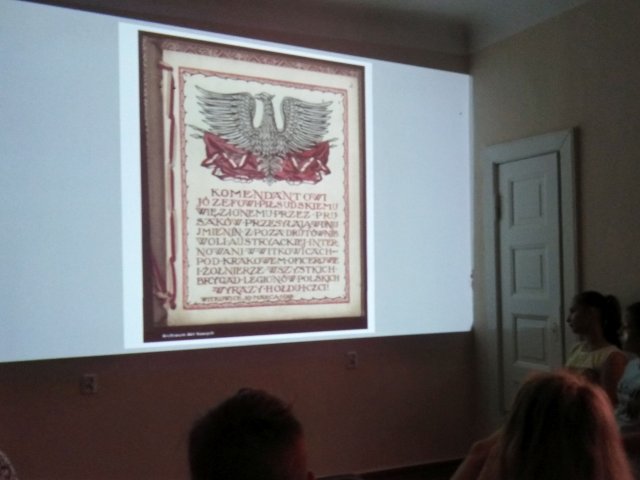 KOMENDANTOWI
JÓZEFOWI PIŁSUDSKIEMU
WIĘZIONEMU PRZEZ PRU
SAKÓW PRZESYŁAJĄ W DNIU
IMIENIN Z POZA DRUTÓW NIE
WOLI AUSTRYACKIEJ INTER
NOWANI W WITKOWICACH
POD KRAKOWEM OFICEROWIE
I ŻOŁNIERZE WSZYSTKICH
BRYGAD LEGIONÓW POLSKICH
WYRAZY HOŁDU I CZCI!
WITKOWICE, 19 MARCA 1918
Archiwum Akt Nowych